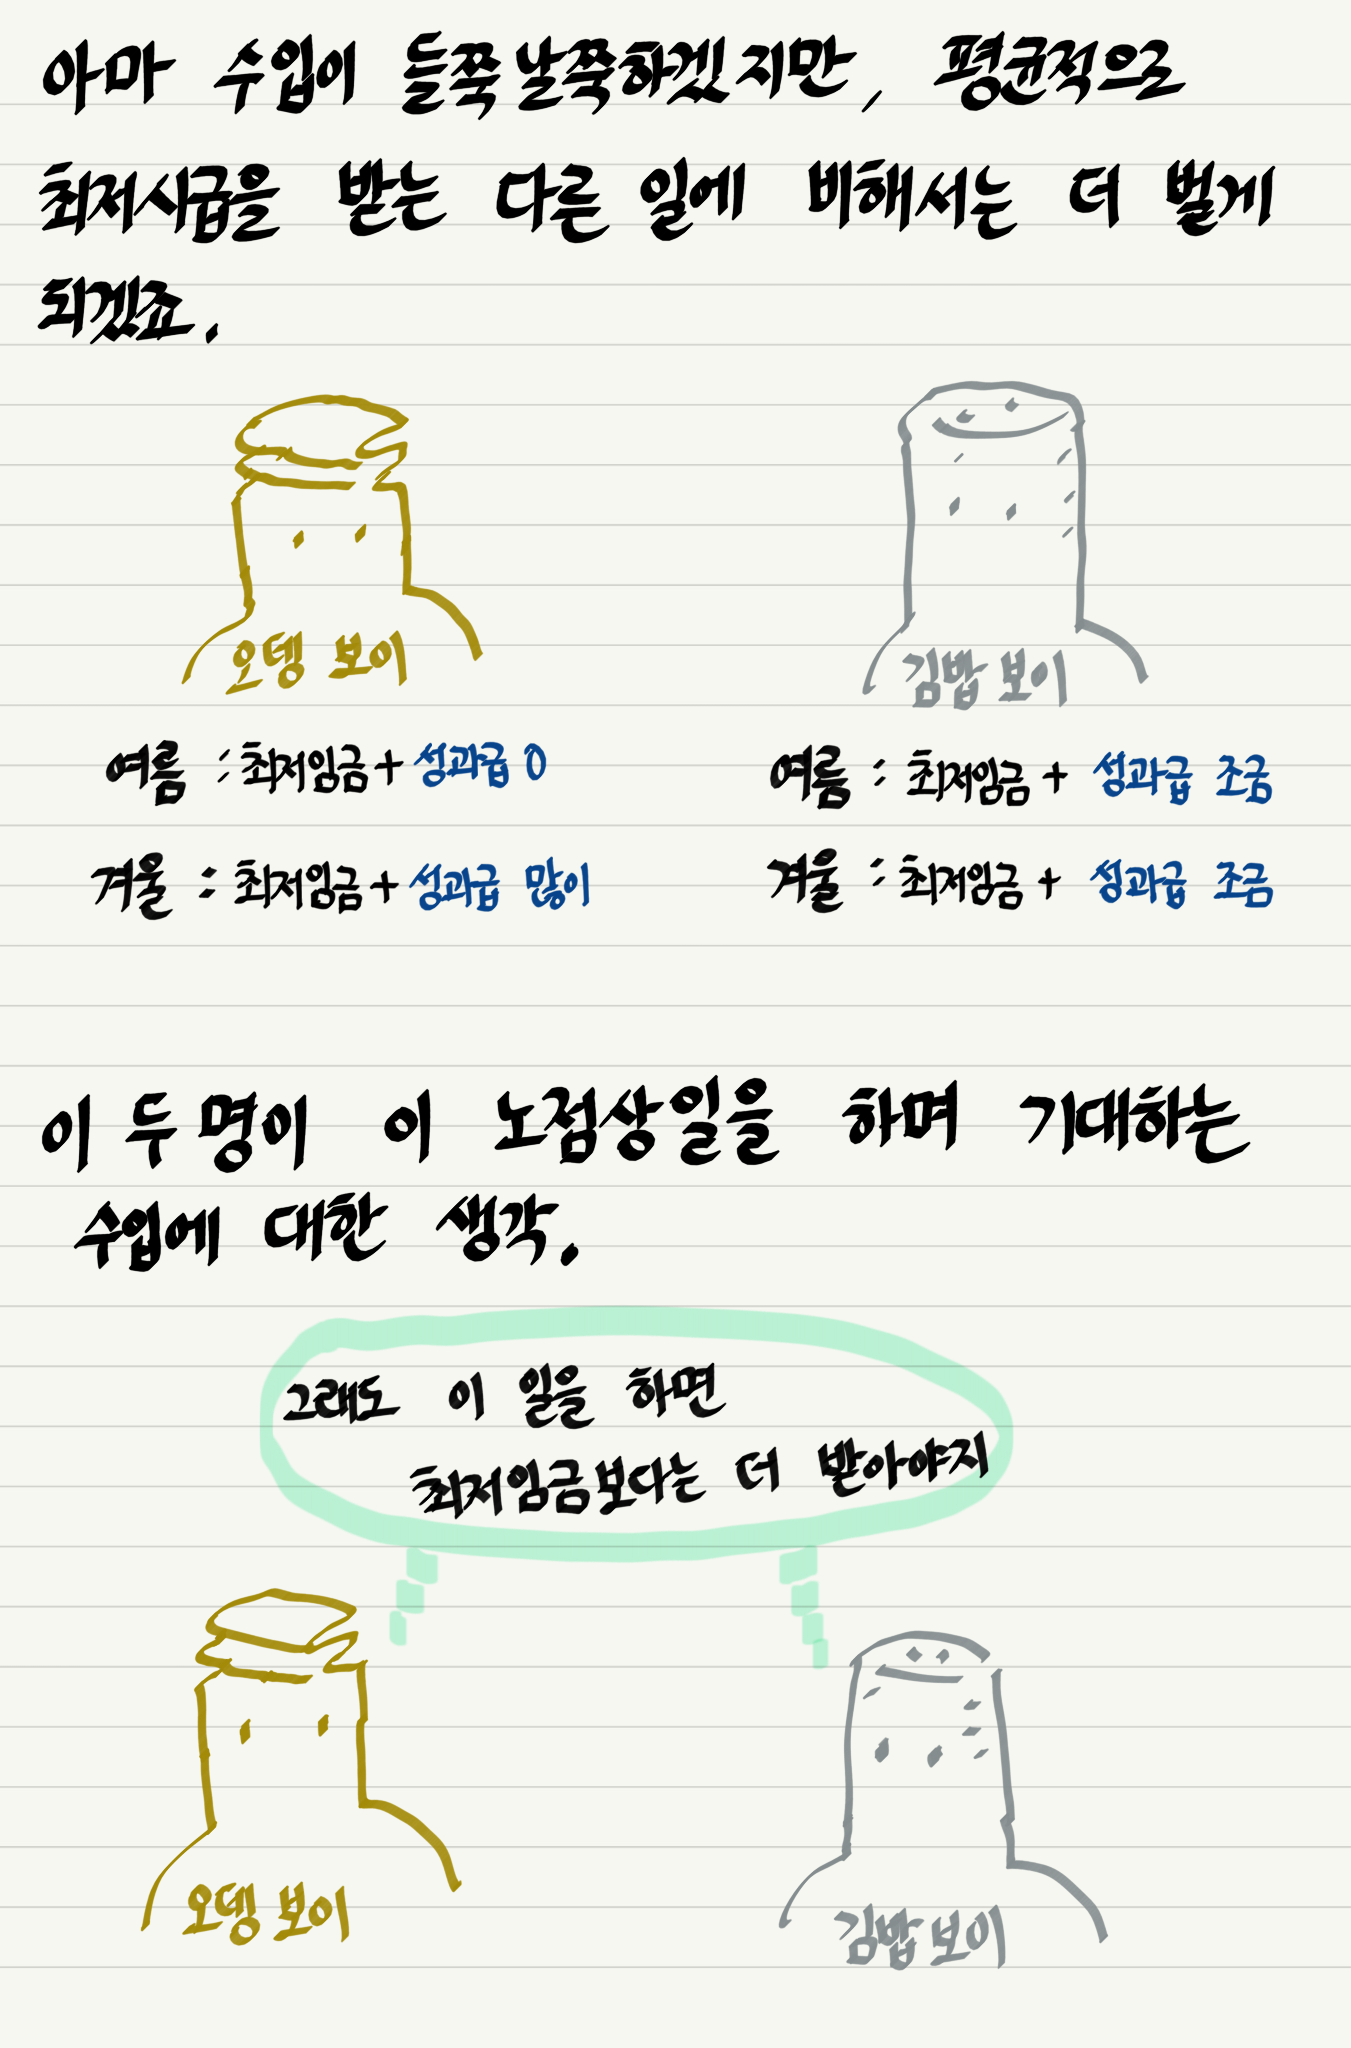 아마 수입이 들쭉날쭉하겠지만, 평균적으로
최저시급을 받는 다른 일에 비해서는 더 벌게
되겠죠.
오뎅 보이
김밥 보이
여름 : 최저임금 + 성과급 0
여름 : 최저임금 + 성과급 조금
겨울 : 최저임금 + 성과급 많이
겨울 : 최저임금 + 성과급 조금
이 두 명이 이 노점상일을 하며 기대하는
수입에 대한 생각.
그래도 이 일을 하면
최저임금보다는 더 받아야지
오뎅 보이
김밥 보이